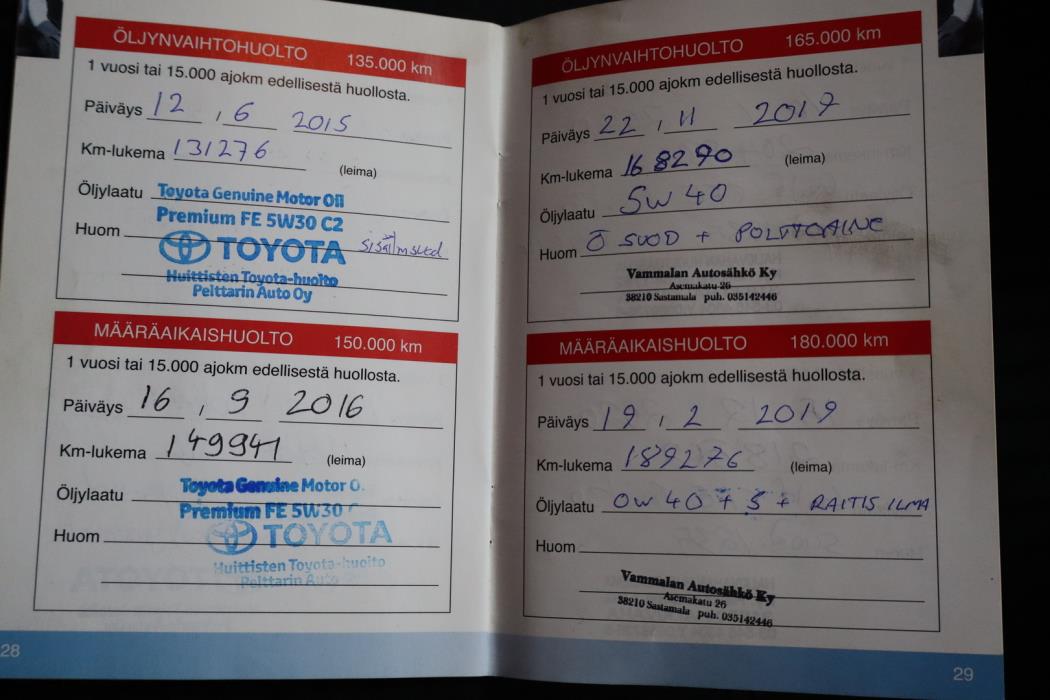 ÖLJYNVAIHTOHUOLTO 135.000 km
1 vuosi tai 15.000 ajokm edellisestä huollosta.
Päiväys 12 , 6 2015
Km-lukema 131276
(leima)
Öljylaatu Toyota Genuine Motor Oil
Premium FE 5W30 C2
Huom TOYOTA
Huittisten Toyota-huolto
Pelttarin Auto Oy
MÄÄRÄAIKAISHUOLTO 150.000 km
1 vuosi tai 15.000 ajokm edellisestä huollosta.
Päiväys 16 , 9 2016
Km-lukema 149941
(leima)
Toyota Genuine Motor O
Öljylaatu
Premium FE 5W30
Huom TOYOTA
Huittisten Toyota-huolto
Pelttarin Auto
28
ÖLJYNVAIHTOHUOLTO 165.000 km
1 vuosi tai 15.000 ajokm edellisestä huollosta.
Päiväys 22 , 11 2017
Km-lukema 168290 (leima)
Öljylaatu 5W 40
Huom Ö SUOD + POLTTOAINE
Vammalan Autosähkö Ky
Asemakatu 26
38210 Sastamala puh. 035142446
MÄÄRÄAIKAISHUOLTO 180.000 km
1 vuosi tai 15.000 ajokm edellisestä huollosta.
Päiväys 19 , 2 2019
Km-lukema 189276 (leima)
Öljylaatu 0W 40 + S + RAITIS ILMA
Huom
Vammalan Autosähkö Ky
Asemakatu 26
38210 Sastamala puh. 035142446
29